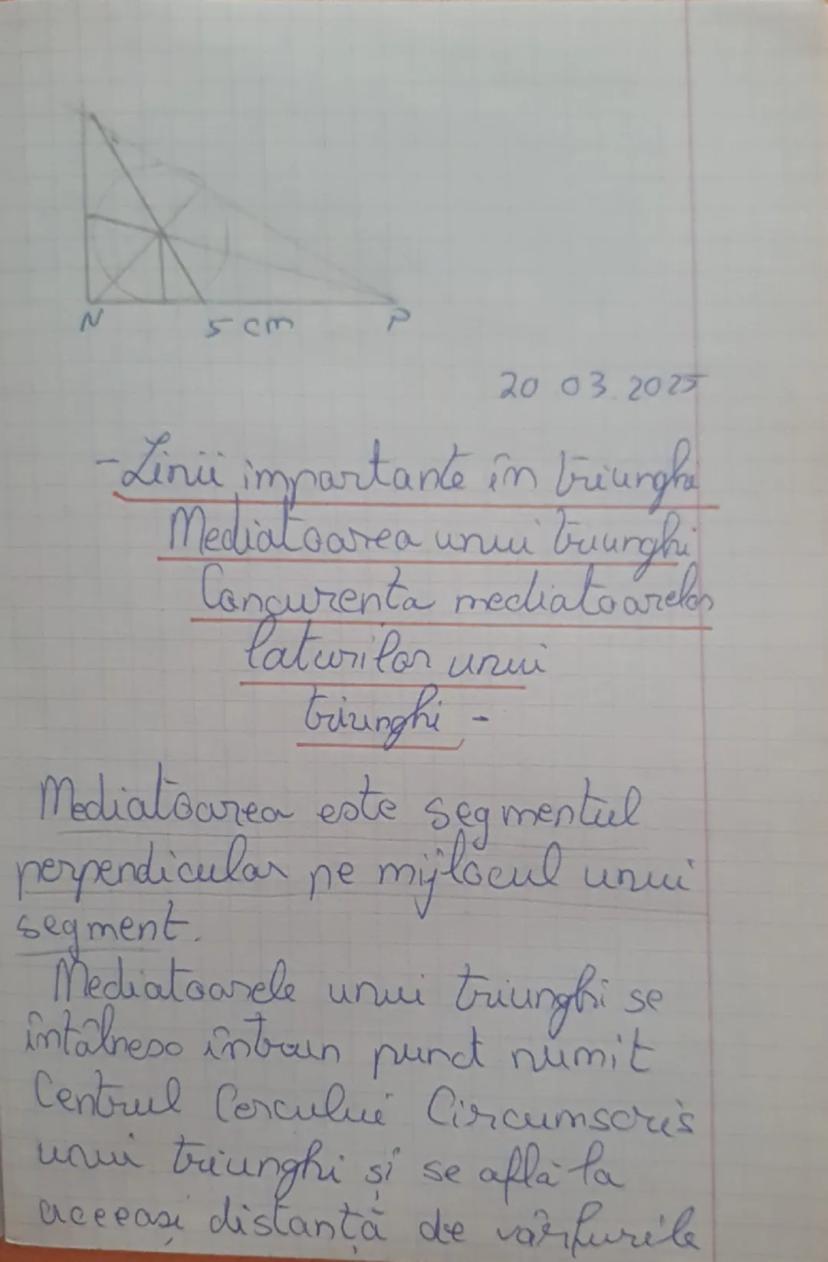 N 5 cm P
20 03.2025
-Linii importante în triunghi
Mediatoarea unui triunghi
Concurenta mediatoarelor
laturilor unui
triunghi -
Mediatoarea este segmentul
perpendicular pe mijlocul unui
segment.
Mediatoarele unui triunghi se
întâlnesc într-un punct numit
Centrul Cercului Circumscris
unui triunghi și se află la
aceeași distanță de vârfurile